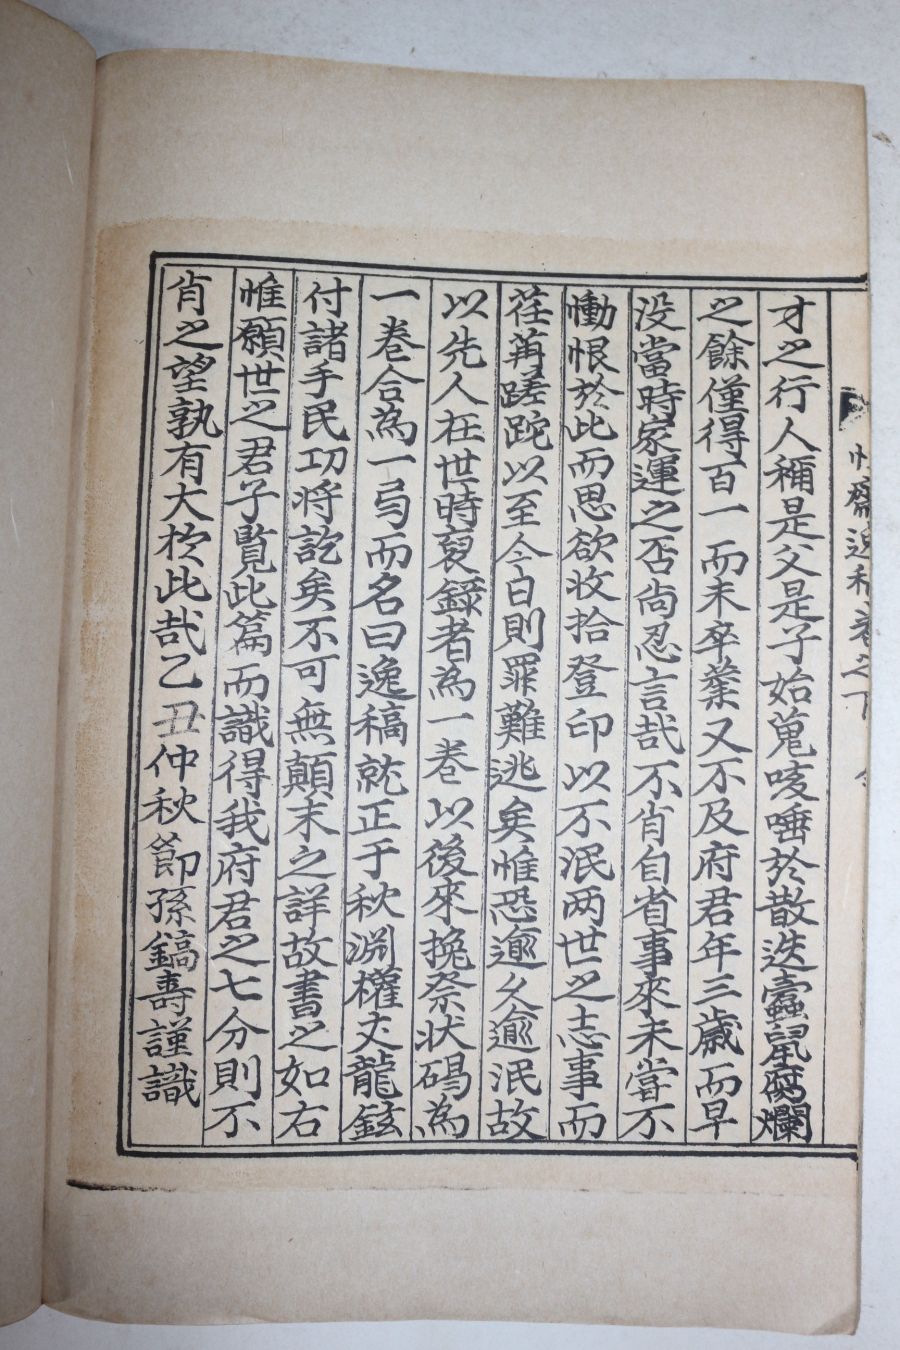 齋逸稿卷之下
才之行人稱是父是子始蒐咳唾於散迭蠹鼠腐爛
之餘僅得百一而未卒業又不及府君年三歲而早
没當時家運之否尚忍言哉不肖自省事來未嘗不
慟恨於此而思欲收拾登印以不泯两世之志事而
荏苒蹉跎以至今日則罪難逃矣惟恐逾久逾泯故
以先人在世時裒錄者為一卷以後來挽祭状碣為
一卷合為一弓而名曰逸稿就正于秋淵權丈龍鉉
付諸手民功将訖矣不可無顛末之詳故書之如右
惟願世之君子覽此篇而識得我府君之七分則不
肖之望孰有大於此哉乙丑仲秋節孫鎬壽謹識